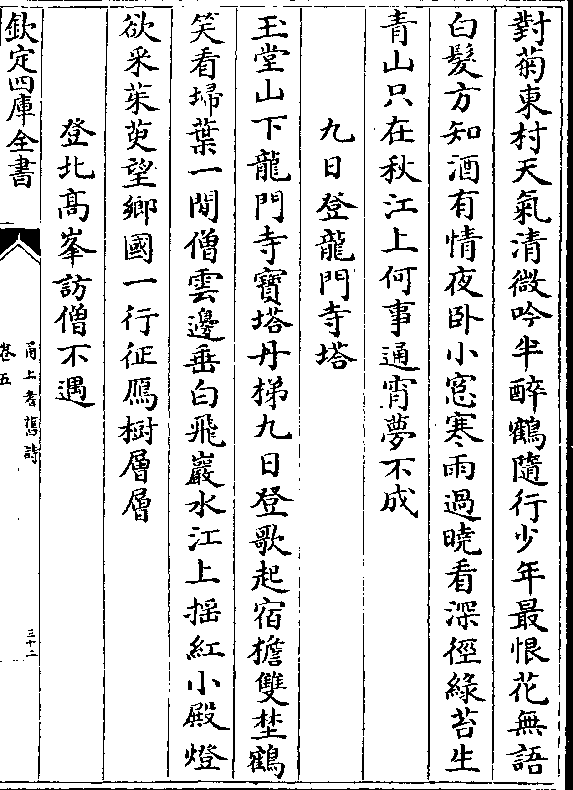 對菊東村天氣清微吟半醉鶴隨行少年最恨花無語
白髮方知酒有情夜卧小窓寒雨過曉看深徑綠苔生
青山只在秋江上何事通宵夢不成
九日登龍門寺塔
玉堂山下龍門寺寶塔丹梯九日登歌起宿檐雙埜鶴
笑看埽葉一閒僧雲邊垂白飛巖水江上摇紅小殿燈
欲采茱萸望鄉國一行征鴈樹層層
登北髙峯訪僧不遇
欽定四庫全書
甬上耆舊詩
卷五
三十二